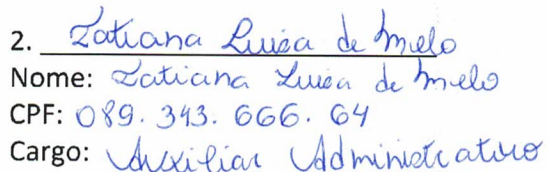 2. Tatiana Luisa de Melo
Nome: Tatiana Luisa de Melo
CPF: 089.343.666.64
Cargo: Auxiliar Administrativo